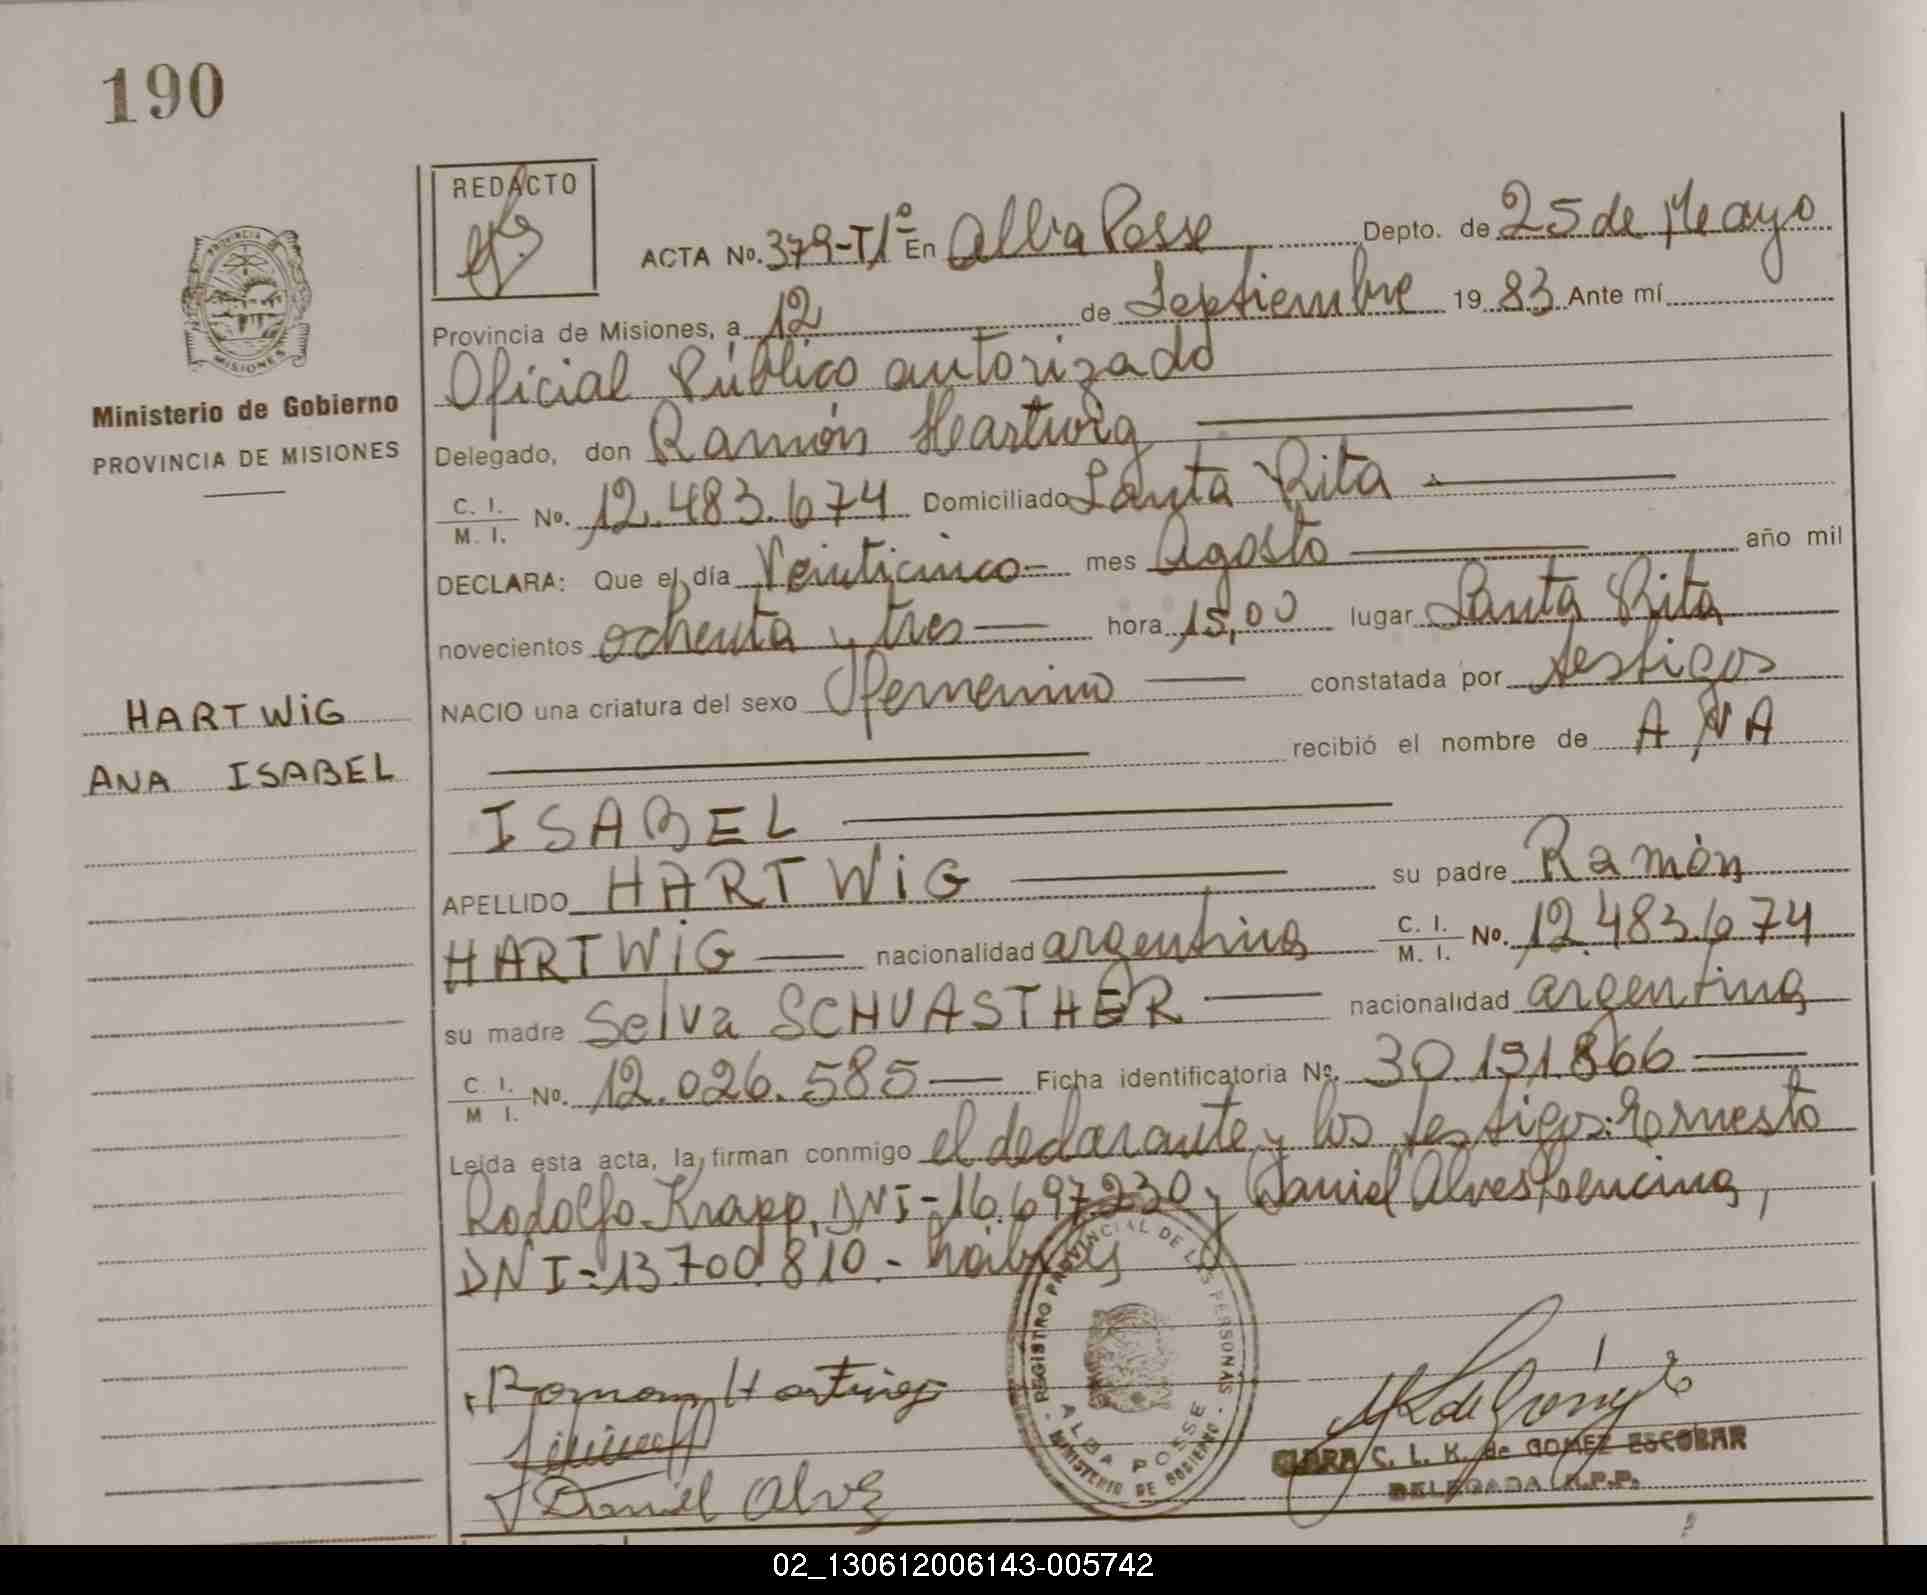 190
REDACTO
ACTA No. 379-T/1º En Alba Posse Depto. de 25 de Mayo
Provincia de Misiones, a 12 de Septiembre 19 83 Ante mí
Oficial Público autorizado
Ministerio de Gobierno
PROVINCIA DE MISIONES
Delegado, don Ramón Hartwig
C. I. / M. I. No. 12.483.674 Domiciliado Santa Rita
DECLARA: Que el día Veinticinco mes Agosto año mil
novecientos ochenta y tres hora 15,00 lugar Santa Rita
NACIO una criatura del sexo femenino constatada por testigos
HARTWIG
ANA ISABEL
recibió el nombre de ANA
ISABEL
APELLIDO HARTWIG su padre Ramón
HARTWIG nacionalidad argentina C. I. / M. I. No. 12.483.674
su madre Selva SCHUASTHER nacionalidad argentina
C. I. / M I. No. 12.026.585 Ficha identificatoria No. 30.191.866
Leída esta acta, la firman conmigo el declarante y los testigos: Ernesto
Rodolfo Krapp, DNI-16.697.230 y Daniel Alves
DNI-13.700.810.-
Ramon Hartwig
Daniel Alves
REGISTRO PROVINCIAL DE LAS PERSONAS
ALBA POSSE
MINISTERIO DE GOBIERNO
CLARA C. L. K. de GOMEZ ESCOBAR
DELEGADA R.P.P.
02_130612006143-005742